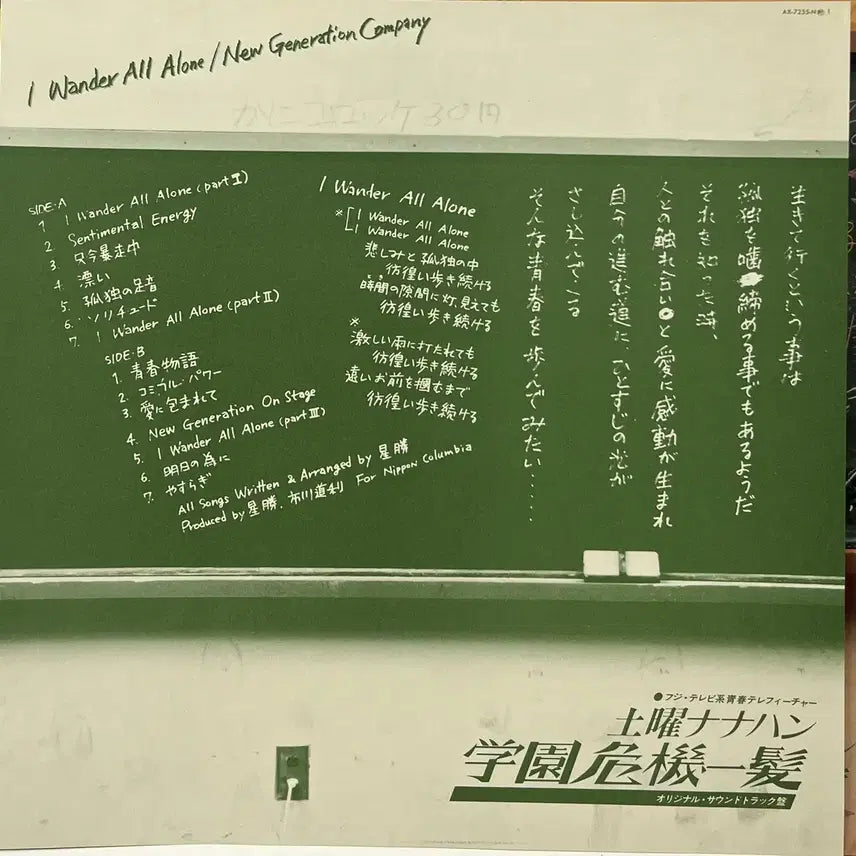 AX-7255-N
I Wander All Alone / New Generation Company
かにコロッケ30円
SIDE・A
1. I Wander All Alone (part I)
2. Sentimental Energy
3. 只今暴走中
4. 漂い
5. 孤独の足音
6. ソリチュード
7. I Wander All Alone (part II)
SIDE・B
1. 青春物語
2. コミプル・パワー
3. 愛に包まれて
4. New Generation On Stage
5. I Wander All Alone (part III)
6. 明日の為に
7. やすらぎ
All Songs Written & Arranged by 星勝
Produced by 星勝、市川道利 For Nippon Columbia
I Wander All Alone
※[I Wander All Alone
I Wander All Alone
悲しみと孤独の中
彷徨い歩き続ける
時間の隙間に灯、見えても
彷徨い歩き続ける
※
激しい雨に打たれても
彷徨い歩き続ける
遠いお前を掴むまで
彷徨い歩き続ける
生きて行くという事は
孤独を噛締める事でもあるようだ
それを知った時、
人との触れ合いと愛に感動が生まれ
自分の進む道に、ひとすじの光が
さし込んでくる
そんな青春を歩んでみたい・・・・・
●フジ・テレビ系青春テレフィーチャー
土曜ナナハン
学園危機一髪
オリジナル・サウンドトラック盤